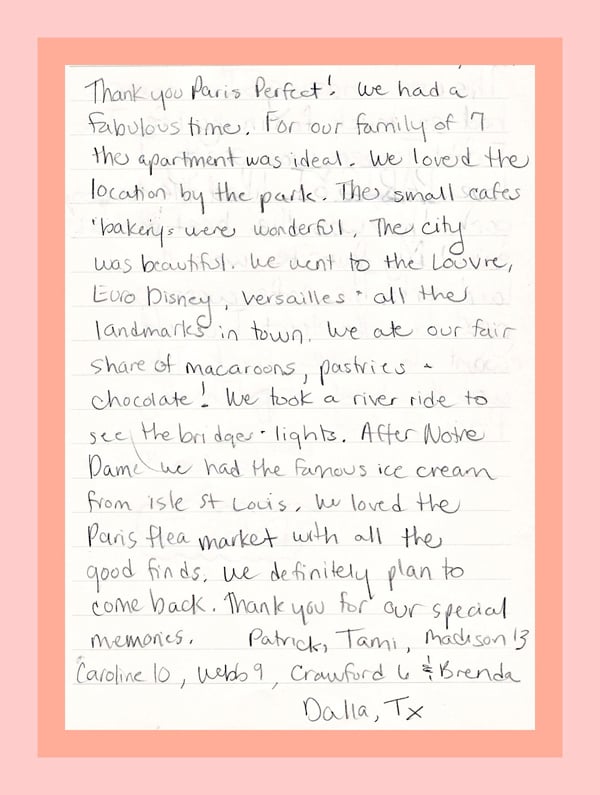 Thank you Paris Perfect! We had a
fabulous time. For our family of 7
the apartment was ideal. We loved the
location by the park. The small cafes
+ bakerys were wonderful. The city
was beautiful. We went to the Louvre,
Euro Disney, Versailles + all the
landmarks in town. We ate our fair
share of macaroons, pastries +
chocolate! We took a river ride to
see the bridges + lights. After Notre
Dame we had the famous ice cream
from isle st Louis. We loved the
Paris flea market with all the
good finds. We definitely plan to
come back. Thank you for our special
memories. Patrick, Tami, Madison 13
Caroline 10, Webb 9, Crawford 6 & Brenda
Dalla, Tx